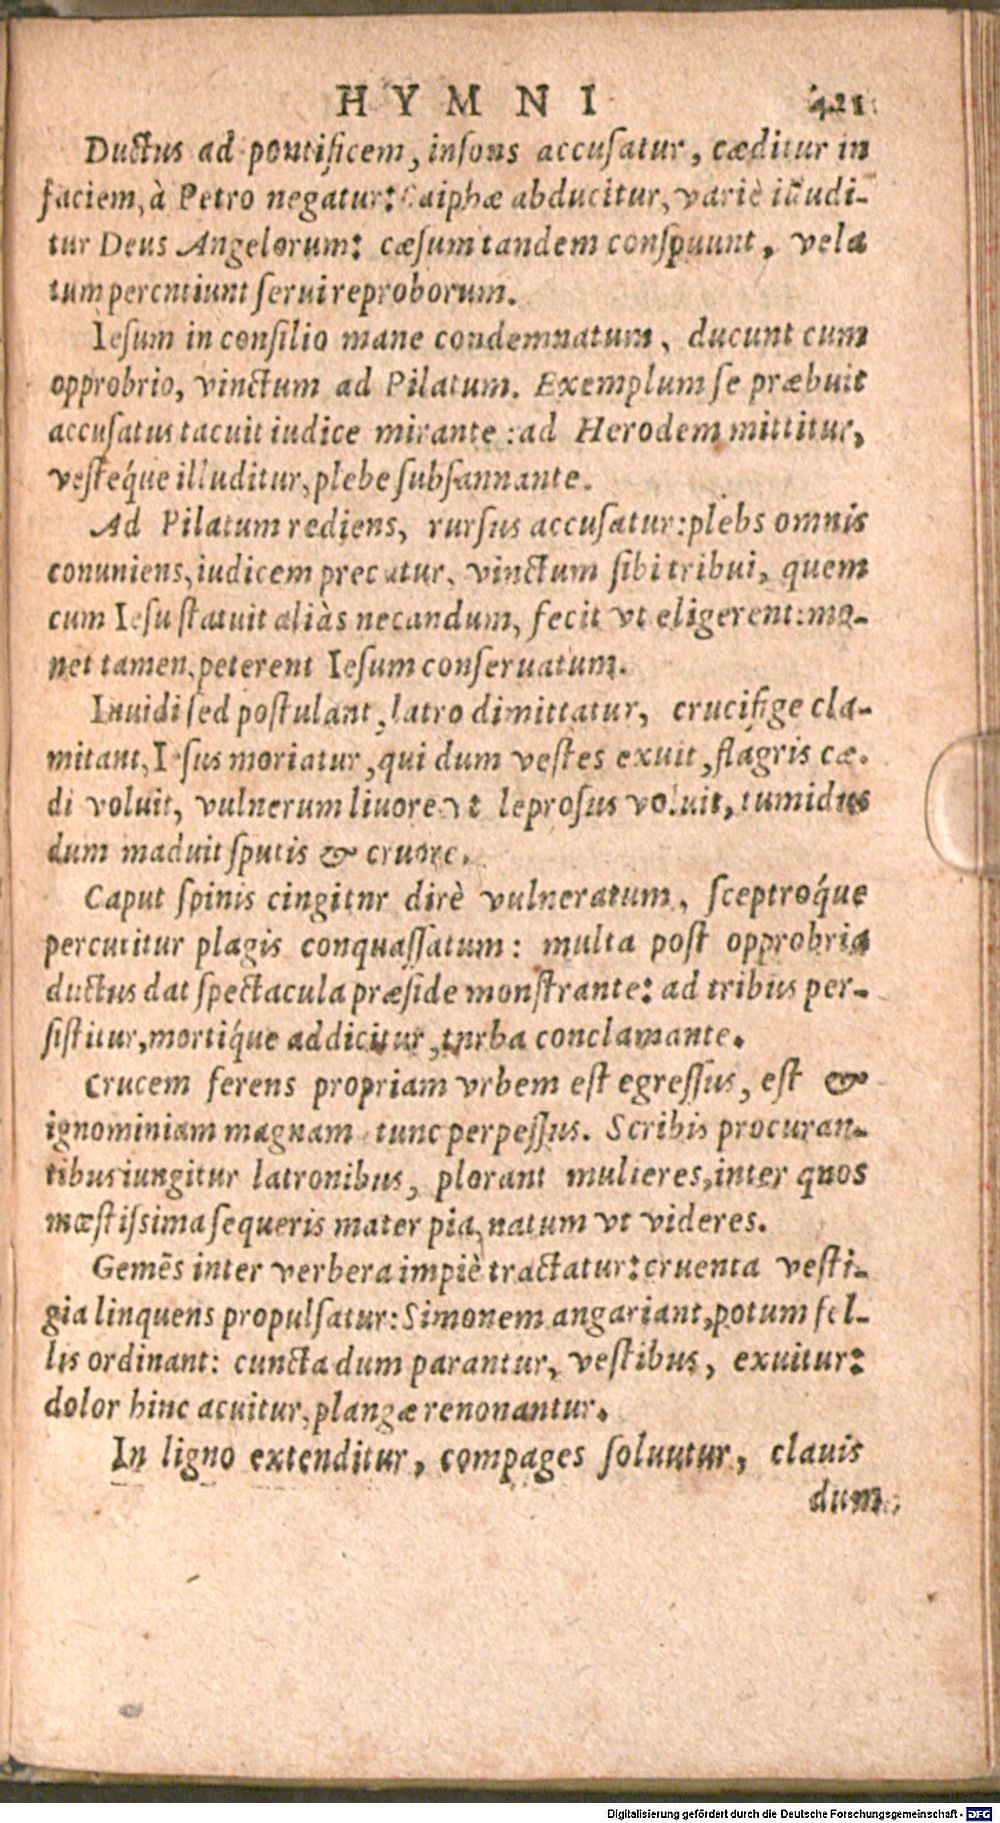 HYMNI 421
Ductus ad pontificem, insons accusatur, cæditur in
faciem, à Petro negatur: Caiphæ abducitur, variè illudi-
tur Deus Angelorum: cæsum tandem conspuunt, vela
tum percutiunt serui reproborum.
Iesum in consilio mane condemnatum, ducunt cum
opprobrio, vinctum ad Pilatum. Exemplum se præbuit
accusatus tacuit iudice mirante: ad Herodem mittitur,
vestéque illuditur, plebe subsannante.
Ad Pilatum rediens, rursus accusatur: plebs omnis
conuniens, iudicem precatur, vinctum sibi tribui, quem
cum Iesu statuit aliàs necandum, fecit vt eligerent: mo-
net tamen, peterent Iesum conseruatum.
Inuidi sed postulant, latro dimittatur, crucifige cla-
mitant, Iesus moriatur, qui dum vestes exuit, flagris cæ-
di voluit, vulnerum liuore vt leprosus voluit, tumidus
dum maduit sputis & cruore.
Caput spinis cingitnr dirè vulneratum, sceptroq́ue
percutitur plagis conquassatum: multa post opprobria
ductus dat spectacula præside monstrante: ad tribus per-
sistitur, mortiq́ue addicitur, tnrba conclamante.
Crucem ferens propriam vrbem est egressus, est &
ignominiam magnam tunc perpessus. Scribis procuran-
tibus iungitur latronibus, plorant mulieres, inter quos
mæstissima sequeris mater pia, natum vt videres.
Gemēs inter verbera impiè tractatur: cruenta vesti-
gia linquens propulsatur: Simonem angariant, potum fel-
lis ordinant: cuncta dum parantur, vestibus, exuitur:
dolor hinc acuitur, plangæ renonantur.
In ligno extenditur, compages soluutur, clauis
dum
Digitalisierung gefördert durch die Deutsche Forschungsgemeinschaft - DFG